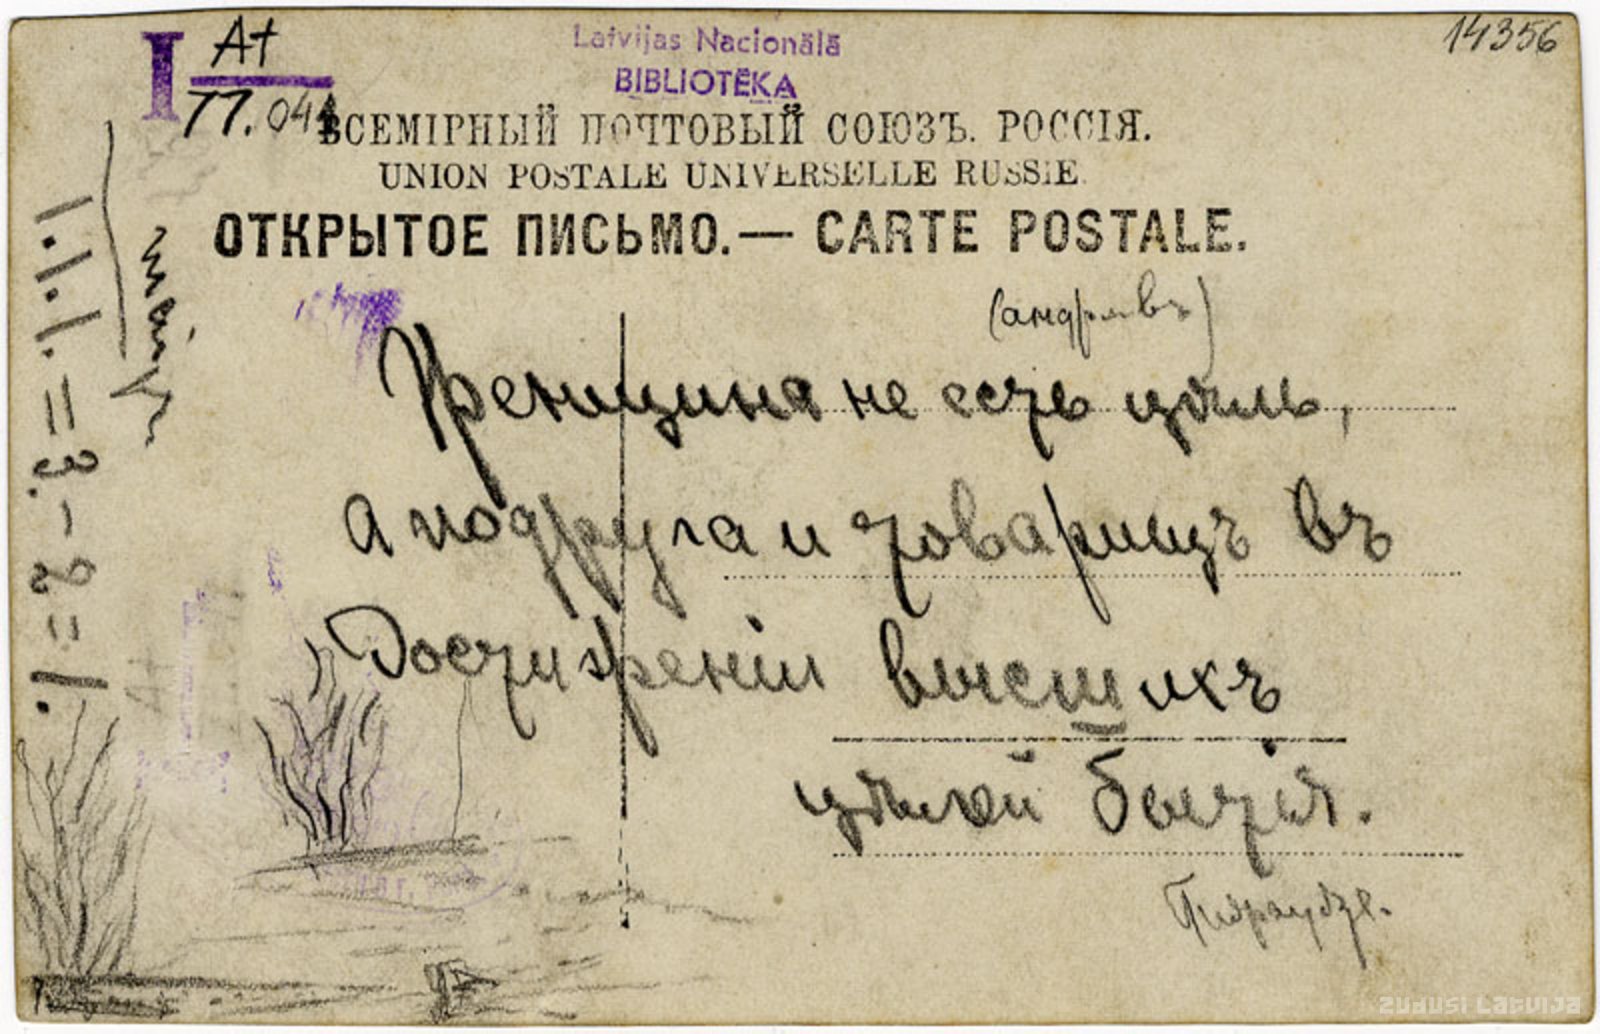 I At
77.04
Latvijas Nacionālā
BIBLIOTĒKA
14356
ВСЕМІРНЫЙ ПОЧТОВЫЙ СОЮЗЪ. РОССІЯ.
UNION POSTALE UNIVERSELLE RUSSIE.
ОТКРЫТОЕ ПИСЬМО.— CARTE POSTALE.
Женщина не есть цѣль,
а подруга и товарищъ въ
Достиженіи высшихъ
цѣлей бытія.
1.1.1. = 3. - 2 = 1.
zudusi Latvija